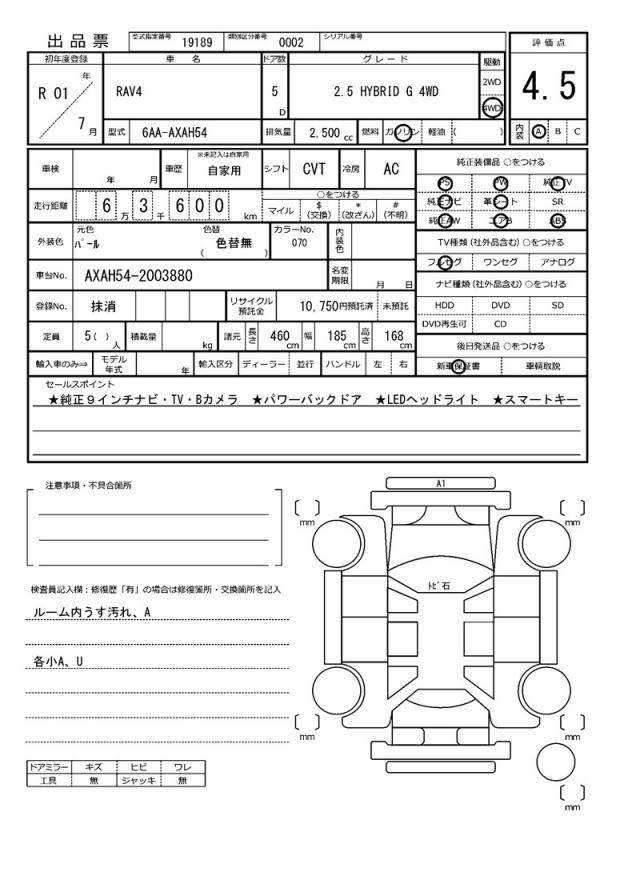 出品票 型式指定番号 19189 類別区分番号 0002 シリアル番号
評価点
4.5
内装 A B C
初年度登録 車名 ドア数 グレード 駆動
R 01 年 7 月 RAV4 5 D 2.5 HYBRID G 4WD 2WD 4WD
型式 6AA-AXAH54 排気量 2,500 cc 燃料 ガソリン 軽油 ( )
車検 年 月 車歴 ※未記入は自家用 自家用 シフト CVT 冷房 AC
走行距離 6 万 3 千 6 0 0 km ○をつける
マイル $ (交換) * (改ざん) # (不明)
外装色 元色 パール 色替 色替無 ( ) カラーNo. 070 内装色
車台No. AXAH54-2003880 名変期限 月 日
登録No. 抹消 リサイクル預託金 10,750円預託済 未預託
定員 5( ) 人 積載量 kg 諸元 長さ 460 cm 幅 185 cm 高さ 168 cm
輸入車のみ⇒ モデル年式 年 輸入区分 ディーラー 並行 ハンドル 左 右
純正装備品 ○をつける
PS PW 純正TV
純正ナビ 革シート SR
純正AW エアB ABS
TV種類 (社外品含む) ○をつける
フルセグ ワンセグ アナログ
ナビ種類 (社外品含む) ○をつける
HDD DVD SD
DVD再生可 CD
後日発送品 ○をつける
新車保証書 車輌取説
セールスポイント
★純正9インチナビ・TV・Bカメラ ★パワーバックドア ★LEDヘッドライト ★スマートキー
注意事項・不具合箇所
検査員記入欄：修復歴「有」の場合は修復箇所・交換箇所を記入
ルーム内うす汚れ、A
各小A、U
ドアミラー キズ ヒビ ワレ
工具 無 ジャッキ 無
A1
トビ石
mm
mm
mm
mm
mm